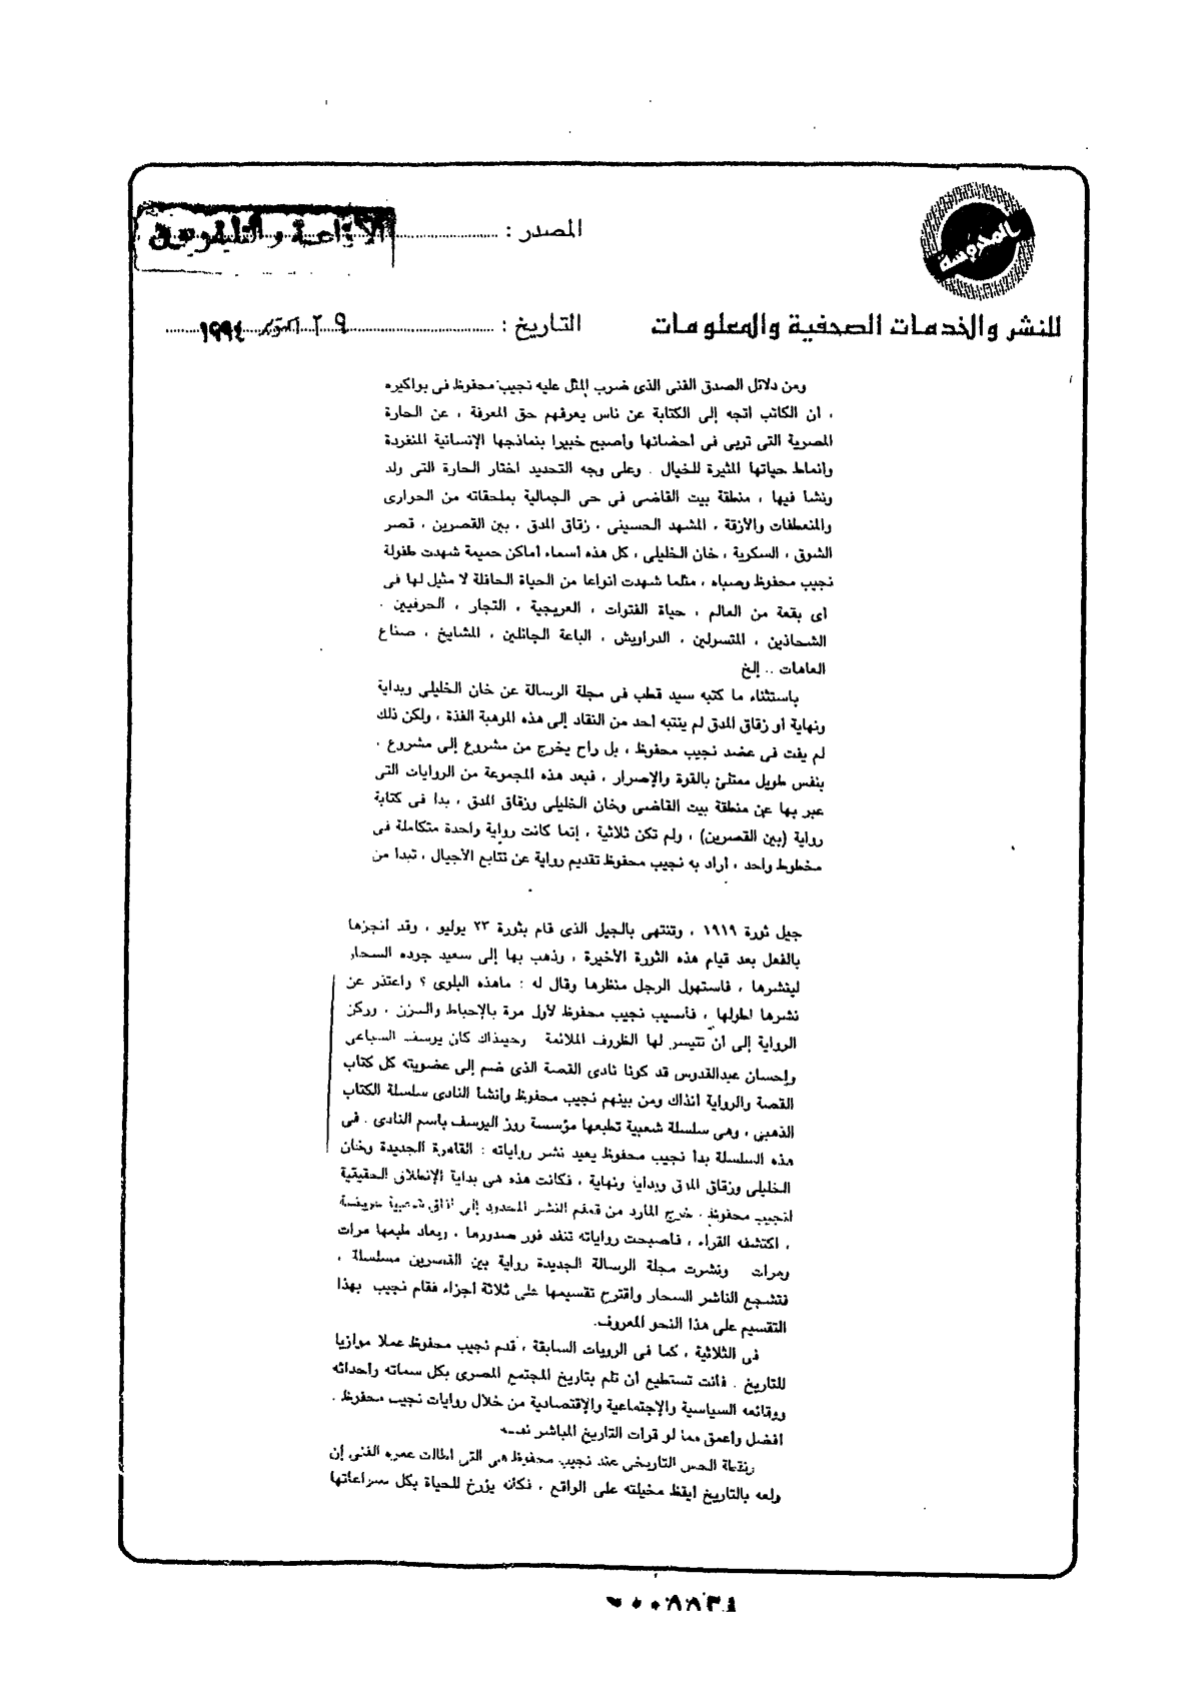 المحروسة
المصدر : الاذاعة والتليفزيون
للنشر والخدمات الصحفية والمعلومات
التاريخ : ٢٩ اكتوبر ١٩٩٤
ومن دلائل الصدق الفنى الذى ضرب المثل عليه نجيب محفوظ فى بواكيره
، ان الكاتب اتجه إلى الكتابة عن ناس يعرفهم حق المعرفة ، عن الحارة
المصرية التى تربى فى أحضانها وأصبح خبيرا بنماذجها الإنسانية المتفردة
وانماط حياتها المثيرة للخيال . وعلى وجه التحديد اختار الحارة التى ولد
ونشا فيها ، منطقة بيت القاضى فى حى الجمالية بملحقاته من الحوارى
والمنعطفات والأزقة ، المشهد الحسينى ، زقاق المدق ، بين القصرين ، قصر
الشوق ، السكرية ، خان الخليلى ، كل هذه أسماء أماكن حميمة شهدت طفولة
نجيب محفوظ وصباه ، مثلما شهدت انواعا من الحياة الحافلة لا مثيل لها فى
اى بقعة من العالم ، حياة الفتوات ، العربجية ، التجار ، الحرفيين .
الشحاذين ، المتسولين ، الدراويش ، الباعة الجائلين ، المشايخ ، صناع
العاهات .. إلخ
باستثناء ما كتبه سيد قطب فى مجلة الرسالة عن خان الخليلى وبداية
ونهاية او زقاق المدق لم ينتبه أحد من النقاد إلى هذه الموهبة الفذة ، ولكن ذلك
لم يفت فى عضد نجيب محفوظ ، بل راح يخرج من مشروع إلى مشروع .
بنفس طويل ممتلئ بالقوة والإصرار ، فبعد هذه المجموعة من الروايات التى
عبر بها عن منطقة بيت القاضى وخان الخليلى وزقاق المدق ، بدا فى كتابة
رواية (بين القصرين) ، ولم تكن ثلاثية ، إنما كانت رواية واحدة متكاملة فى
مخطوط واحد ، أراد به نجيب محفوظ تقديم رواية عن تتابع الأجيال ، تبدا من
جيل ثورة ١٩١٩ ، وتنتهى بالجيل الذى قام بثورة ٢٣ يوليو ، وقد أنجزها
بالفعل بعد قيام هذه الثورة الأخيرة ، وذهب بها إلى سعيد جوده السحار
لينشرها ، فاستهول الرجل منظرها وقال له : ماهذه البلوى ؟ واعتذر عن
نشرها لطولها ، فأصيب نجيب محفوظ لأول مرة بالإحباط والحزن ، وركن
الرواية إلى أن تتيسر لها الظروف الملائمة وحينذاك كان يوسف السباعى
وإحسان عبدالقدوس قد كونا نادى القصة الذى ضم إلى عضويته كل كتاب
القصة والرواية انذاك ومن بينهم نجيب محفوظ وإنشأ النادى سلسلة الكتاب
الذهبى ، وهى سلسلة شعبية تطبعها مؤسسة روز اليوسف باسم النادى . فى
هذه السلسلة بدأ نجيب محفوظ يعيد نشر رواياته : القاهرة الجديدة وخان
الخليلى وزقاق المدق وبداية ونهاية ، فكانت هذه هى بداية الإنطلاق الحقيقية
لنجيب محفوظ . خرج المارد من قمقم النشر المحدود إلى آفاق شعبية عريضة
، اكتشفه القراء ، فأصبحت رواياته تنفد فور صدورها ، ويعاد طبعها مرات
ومرات ونشرت مجلة الرسالة الجديدة رواية بين القصرين مسلسلة ،
فتشجع الناشر السحار واقترح تقسيمها على ثلاثة أجزاء فقام نجيب بهذا
التقسيم على هذا النحو المعروف.
فى الثلاثية ، كما فى الرويات السابقة ، قدم نجيب محفوظ عملا موازيا
للتاريخ . فأنت تستطيع ان تلم بتاريخ المجتمع المصرى بكل سماته وأحداثه
ووقائعه السياسية والإجتماعية والإقتصادية من خلال روايات نجيب محفوظ .
افضل وأعمق مما لو قرات التاريخ المباشر نفسه
الحس التاريخى عند نجيب محفوظ هى التى اطالت عمره الفنى إن
ولعه بالتاريخ أيقظ مخيلته على الواقع ، فكأنه يؤرخ للحياة بكل صراعاتها